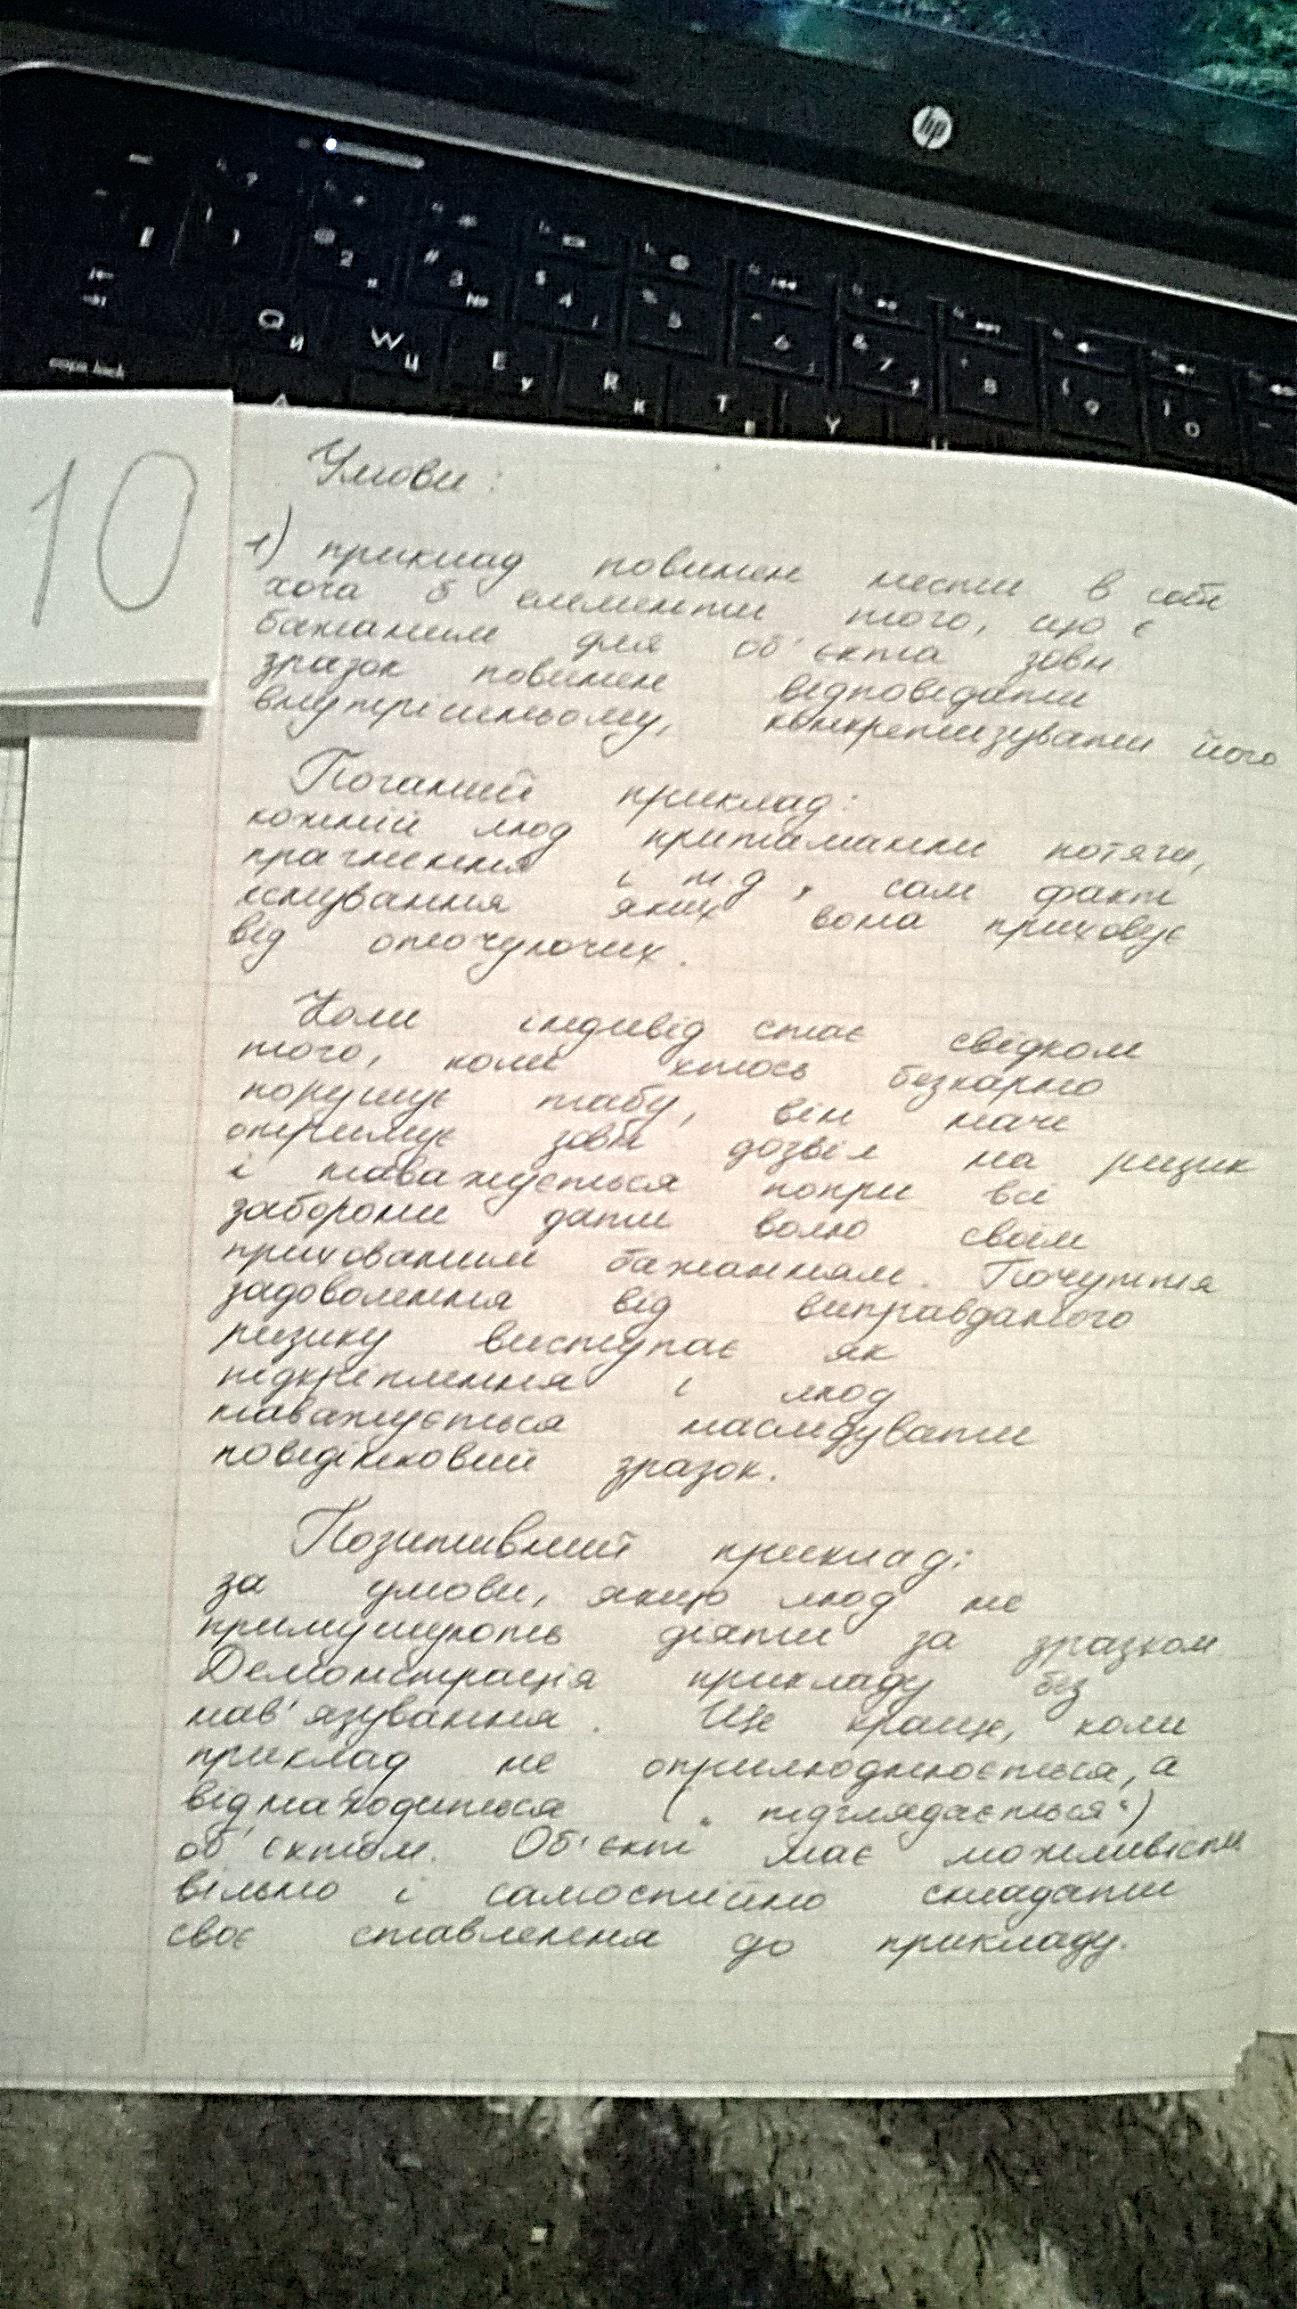 hp
caps lock
10
Умови:
1) приклад повинен нести в собі
хоча б елементи того, що є
бажаним для об'єкта зовн
зразок повинен відповідати
внутрішньому, конкретизувати його
Поганий приклад:
кожній люд притаманни потяги,
прагнення і т.д, сам факт
існування яких вона приховує
від оточуючих.
Коли індивід стає свідком
того, коли хтось безкарно
порушує табу, він наче
отримує зовн дозвіл на ризик
і наважується попри всі
заборони дати волю своїм
прихованим бажанням. Почуття
задоволення від виправданого
ризику виступає як
підкріплення і люд
наважується наслідувати
поведінковий зразок.
Позитивний приклад:
за умови, якщо люд не
примушують діяти за зразком
Демонстрація прикладу без
нав'язування. Ще краще, коли
приклад не оприлюднюється, а
віднаходиться („підглядається“)
об'єктом. Об'єкт має можливість
вільно і самостійно складати
своє ставлення до прикладу.